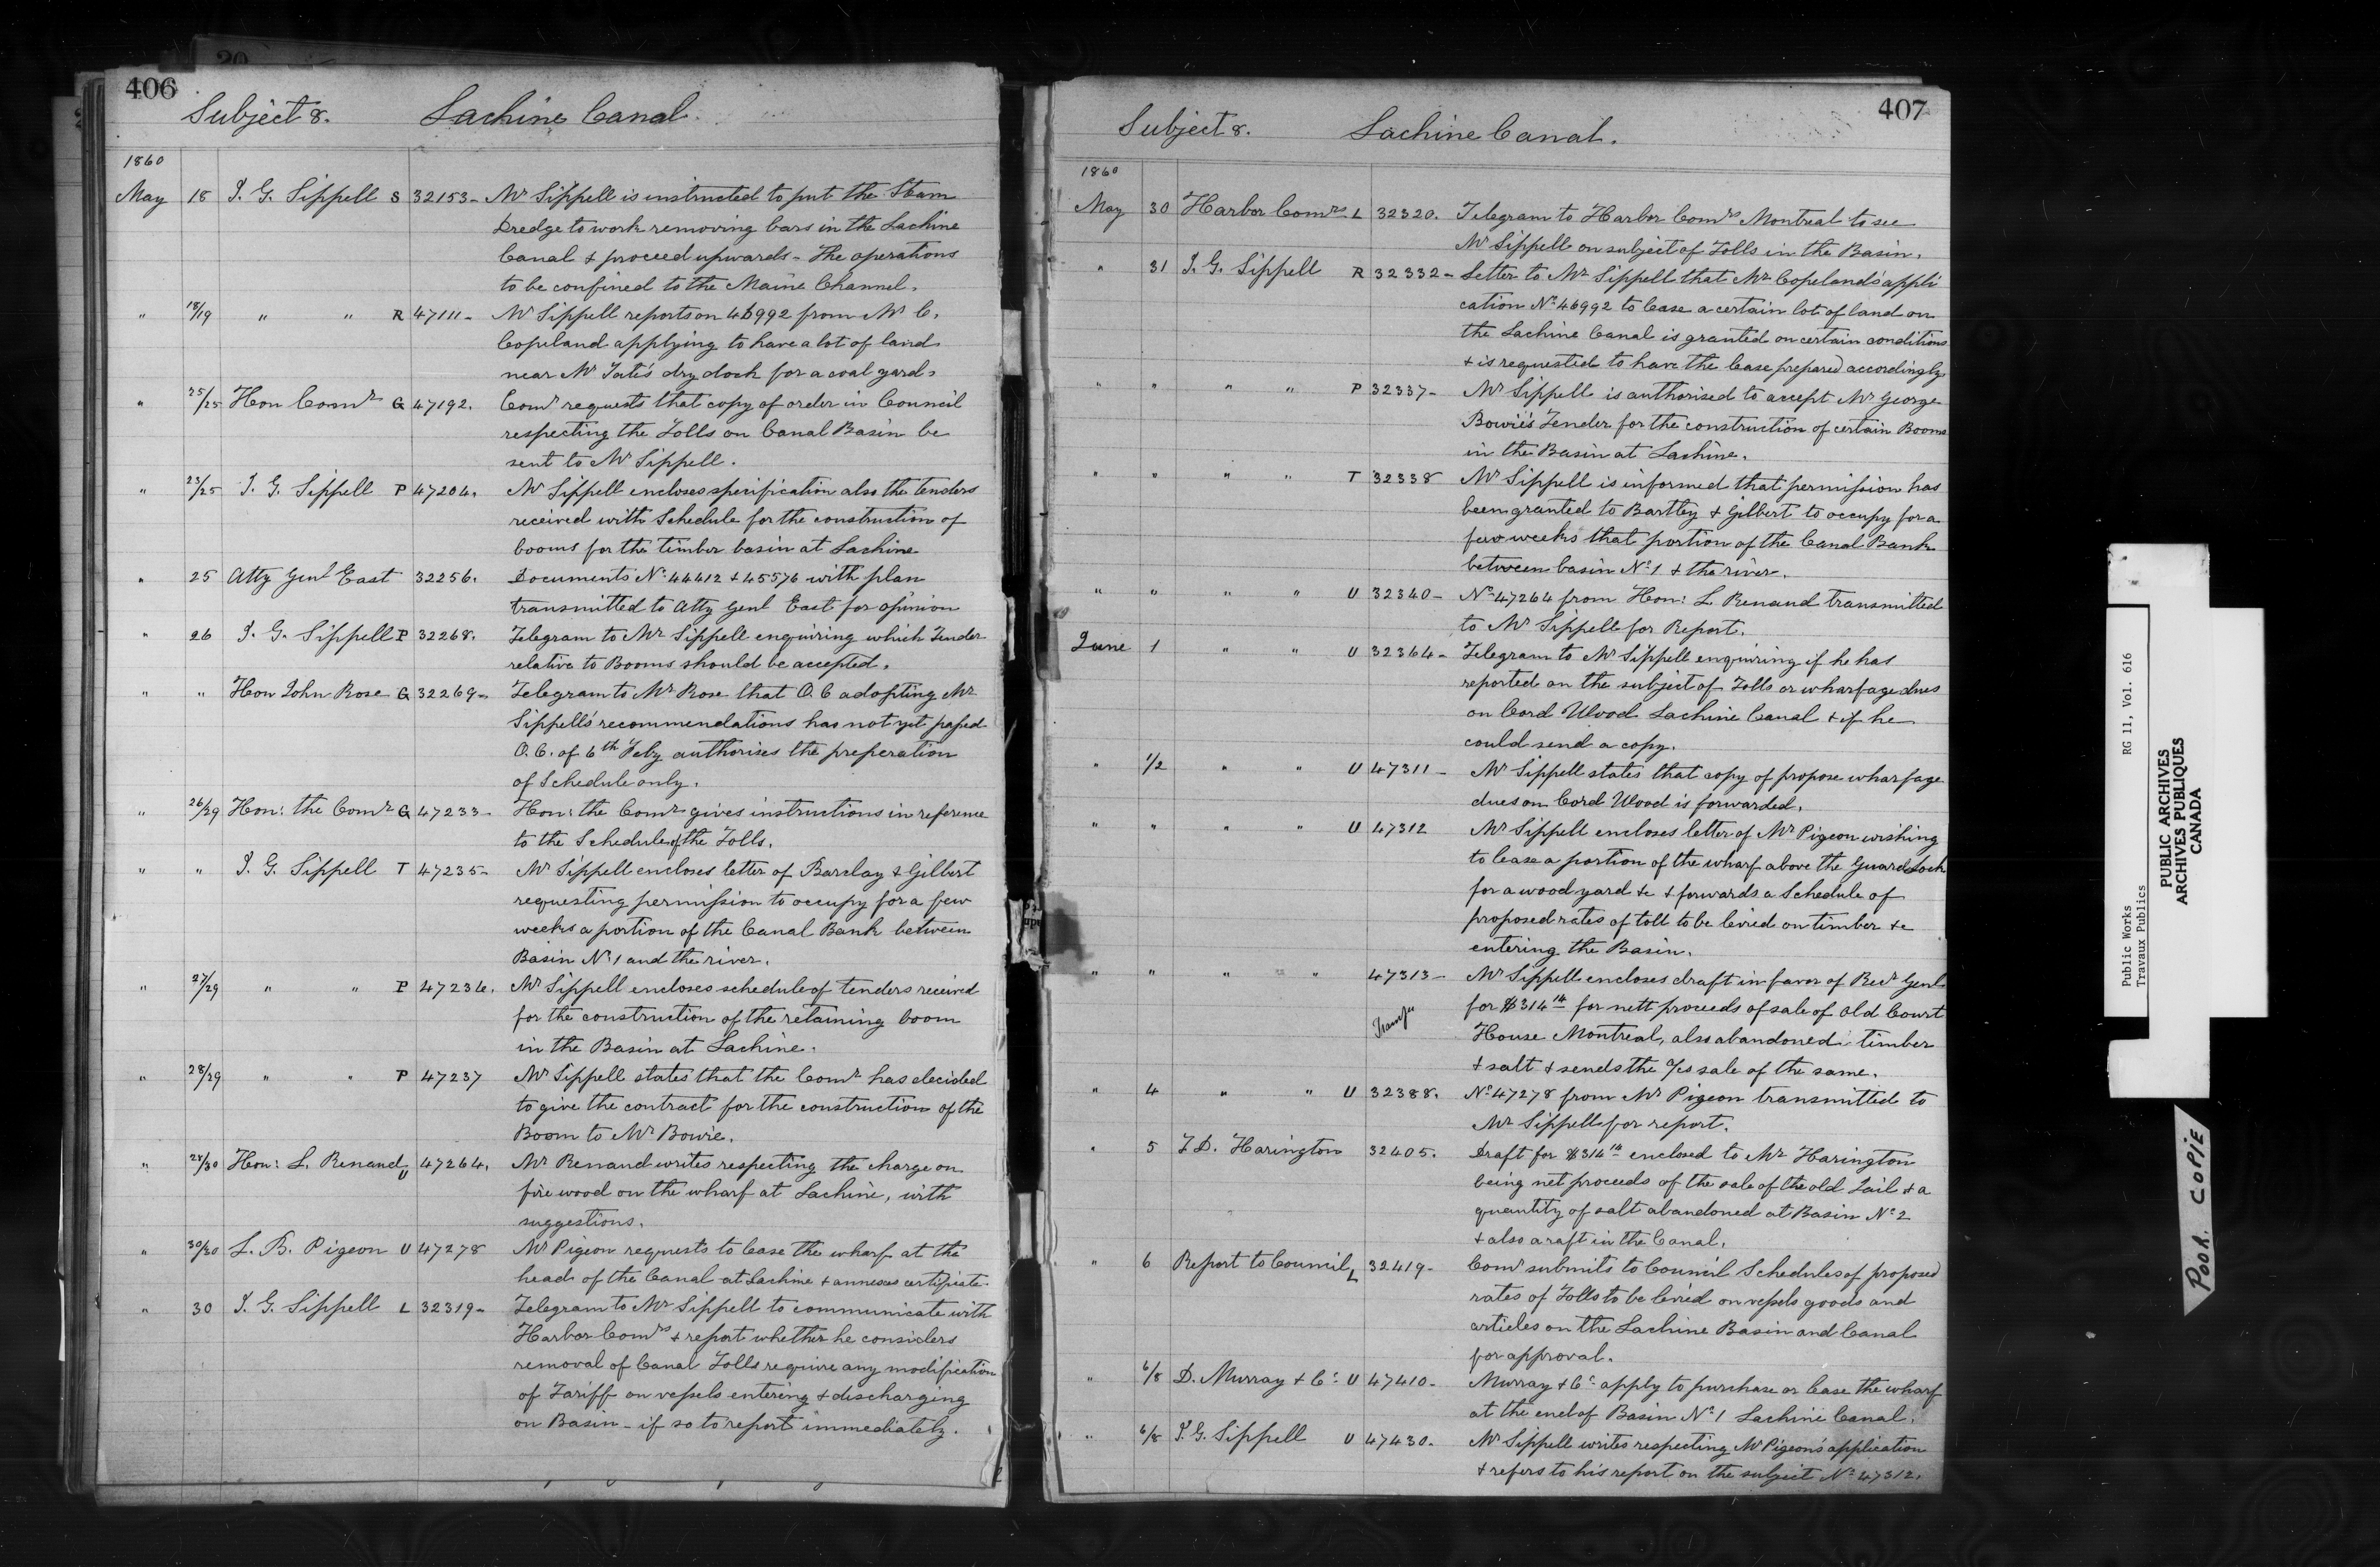 406
Subject 8. Lachine Canal.
1860
May 18 J. G. Sippell S 32153 - Mr Sippell is instructed to put the Steam
Dredge to work removing bars in the Lachine
Canal & proceed upwards - The operations
to be confined to the Maine Channel.
" 18/19 " " R 47111 - Mr Sippell reports on 46992 from Mr C.
Copeland applying to have a lot of land
near Mr Tate's dry dock for a coal yard.
" 25/25 Hon Comr G 47192. Comr requests that copy of order in Council
respecting the Tolls on Canal Basin be
sent to Mr Sippell.
" 23/25 J. G. Sippell P 47204. Mr Sippell encloses specification also the tenders
received with Schedule for the construction of
booms for the timber basin at Lachine
" 25 Atty Genl East 32256. Documents No 44412 & 45576 with plan
transmitted to Atty Genl East for opinion
" 26 J. G. Sippell P 32268. Telegram to Mr Sippell enquiring which Tender
relative to Booms should be accepted.
" " Hon John Rose G 32269 - Telegram to Mr Rose that O. C adopting Mr
Sippell's recommendations has not yet passed
O. C. of 6th Feby authorises the preperation
of Schedule only.
" 26/29 Hon: the Comr G 47233 - Hon: the Comr gives instructions in reference
to the Schedule of the Tolls.
" " J. G. Sippell T 47235 - Mr Sippell encloses letter of Barclay & Gilbert
requesting permission to occupy for a few
weeks a portion of the Canal Bank between
Basin No 1 and the river.
" 27/29 " " P 47236. Mr Sippell encloses schedule of tenders received
for the construction of the retaining boom
in the Basin at Lachine.
" 28/29 " " P 47237 Mr Sippell states that the Comr has decided
to give the contract for the construction of the
Boom to Mr Bowie.
" 28/30 Hon: L. Renaud U 47264. Mr Renaud writes respecting the charge on
fire wood on the wharf at Lachine, with
suggestions.
" 30/30 L. B. Pigeon U 47278 Mr Pigeon requests to lease the wharf at the
head of the Canal at Lachine & annexes certificate
" 30 J. G. Sippell L 32319 - Telegram to Mr Sippell to communicate with
Harbor Comrs & report whether he considers
removal of Canal Tolls require any modification
of Tariff on vessels entering & discharging
on Basin - if so to report immediately.
407
Subject 8. Lachine Canal.
1860
May 30 Harbor Comrs. L 32320. Telegram to Harbor Comrs Montreal to see
Mr Sippell on subject of Tolls in the Basin.
" 31 J. G. Sippell R 32332 - Letter to Mr Sippell that Mr Copeland's appli
cation No 46992 to lease a certain lot of land on
the Lachine Canal is granted on certain conditions
& is requested to have the lease prepared accordingly
" " " " P 32337 - Mr Sippell is authorised to accept Mr George
Bowie's Tender for the construction of certain Booms
in the Basin at Lachine.
" " " " T 32338 Mr Sippell is informed that permission has
been granted to Bartley & Gilbert to occupy for a
few weeks that portion of the Canal Bank
between basin No 1 & the river.
" " " " U 32340 - No 47264 from Hon: L. Renaud transmitted
to Mr Sippell for Report.
June 1 " " U 32364 - Telegram to Mr Sippell enquiring if he has
reported on the subject of Tolls or wharfage dues
on Cord Wood Lachine Canal & if he
could send a copy.
" 1/2 " " U 47311 - Mr Sippell states that copy of propose wharfage
dues on Cord Wood is forwarded.
" " " " U 47312 Mr Sippell encloses letter of Mr Pigeon wishing
to lease a portion of the wharf above the Guard Lock
for a wood yard &c & forwards a Schedule of
proposed rates of toll to be levied on timber &c
entering the Basin.
" " " " 47313 - Mr Sippell encloses draft in favor of Recr Genl
for $314 14 for nett proceeds of sale of old Court
House Montreal, also abandoned timber
& salt & sends the a/cs sale of the same.
" 4 " " U 32388. No 47278 from Mr Pigeon transmitted to
Mr Sippell for report.
" 5 T. D. Harington 32405. Draft for $314 14 enclosed to Mr Harington
being net proceeds of the sale of the old Jail & a
quantity of salt abandoned at Basin No 2
& also a raft in the Canal.
" 6 Report to Council L 32419 - Comr submits to Council Schedules of proposed
rates of Tolls to be levied on vessels goods and
articles on the Lachine Basin and Canal
for approval.
" 6/8 D. Murray & Co: U 47410 - Murray & Co: apply to purchase or lease the wharf
at the end of Basin No 1 Lachine Canal.
" 6/8 J. G. Sippell U 47430. Mr Sippell writes respecting Mr Pigeon's application
& refers to his report on the subject No 47312.
Public Works RG 11, Vol. 616
Travaux Publics
PUBLIC ARCHIVES
ARCHIVES PUBLIQUES
CANADA
POOR COPIE